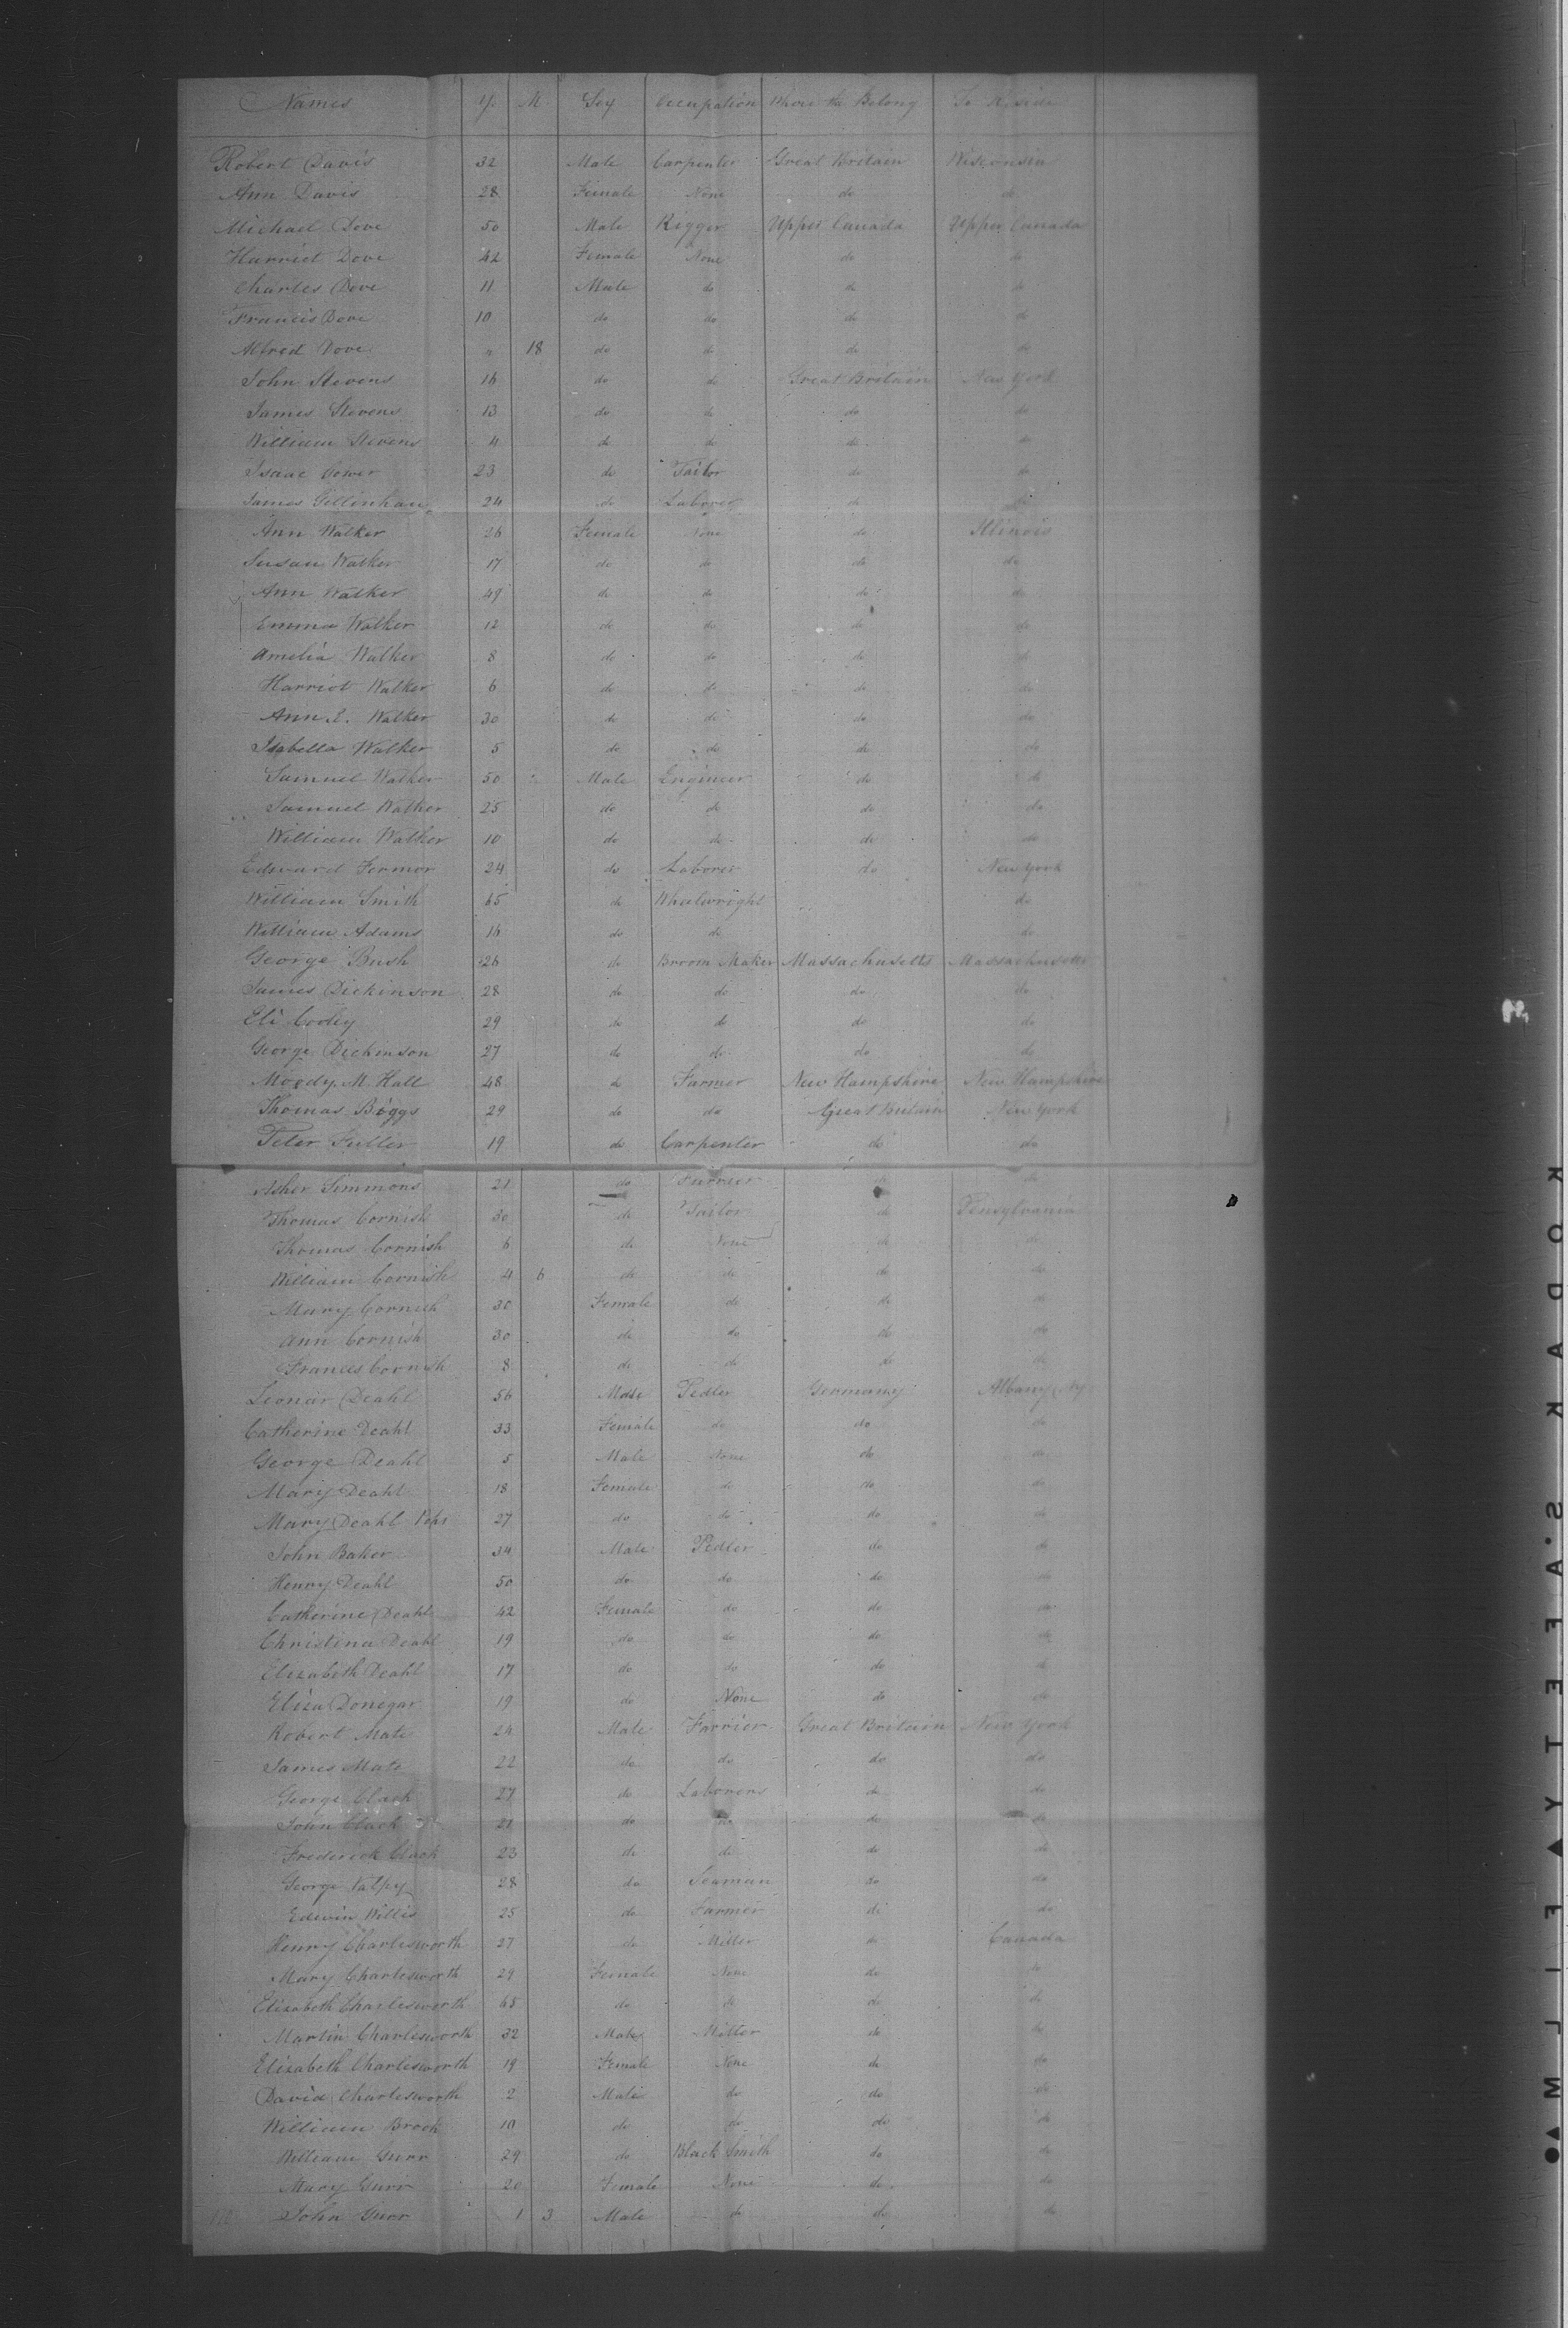 Names Y. M. Sex Occupation Where the Belong To Reside
Robert Davis 32 Male Carpenter Great Britain Wisconsin
Ann Davis 28 Female None do do
Michael Dove 50 Male Rigger Upper Canada Upper Canada
Harriet Dove 42 Female None do do
Charles Dove 11 Male do do do
Francis Dove 10 do do do do
Alfred Dove " 18 do do do do
John Stevens 16 do do Great Britain New York
James Stevens 13 do do do do
William Stevens 4 do do do do
Isaac 23 do Tailor do do
James Gillinham 24 do Laborer do do
Ann Walker 26 Female None do Illinois
Susan Walker 17 do do do do
Ann Walker 49 do do do do
Emma Walker 12 do do do do
Amelia Walker 8 do do do do
Harriot Walker 6 do do do do
Ann E. Walker 30 do do do do
Isabella Walker 5 do do do do
Samuel Walker 50 Male Engineer do do
Samuel Walker 25 do do do do
William Walker 10 do do do do
Edward Fermor 24 do Laborer do New York
William Smith 65 do Whelwright do
William Adams 16 do do do
George Bush 26 do Broom Maker Massachusetts Massachusetts
James Dickinson 28 do do do do
Eli Cooley 29 do do do do
George Dickinson 27 do do do do
Moody M. Hall 48 do Farmer New Hampshire New Hampshire
Thomas Boggs 29 do do Great Britain New York
Peter Fuller 19 do Carpenter do do
Asher Simmons 21 do Furrier do do
Thomas Cornish 30 do Tailor do Pensylvania
Thomas Cornish 6 do None do do
William Cornish 4 6 do do do do
Mary Cornish 30 Female do do do
Ann Cornish 30 do do do do
Frances Cornish 8 do do do do
Leonar Deahl 56 Male Pedler Germany Albany NY
Catherine Deahl 33 Female do do do
George Deahl 5 Male None do do
Mary Deahl 18 Female do do do
Mary Deahl 27 do do do do
John Baker 34 Male Pedler do do
Henry Deahl 50 do do do do
Catherine Deahl 42 Female do do do
Christina Deahl 19 do do do do
Elizabeth Deahl 17 do do do do
Eliza Donegar 19 do None do do
Robert Mate 24 Male Farrier Great Britain New York
James Mate 22 do do do do
George Clack 27 do Laborers do do
John Clack 21 do do do do
Frederick Clack 23 do do do do
George Valpy 28 do Seaman do do
Edwin Willis 25 do Farmer do do
Henry Charlesworth 27 do Miller do Canada
Mary Charlesworth 29 Female None do do
Elizabeth Charlesworth 65 do do do do
Martin Charlesworth 32 Male Miller do do
Elizabeth Charlesworth 19 Female None do do
David Charlesworth 2 Male do do do
William Brook 10 do do do do
William Gurr 29 do Black Smith do do
Mary Gurr 20 Female None do do
John Gurr 1 3 Male do do do
KODAK S.AFETY FILM